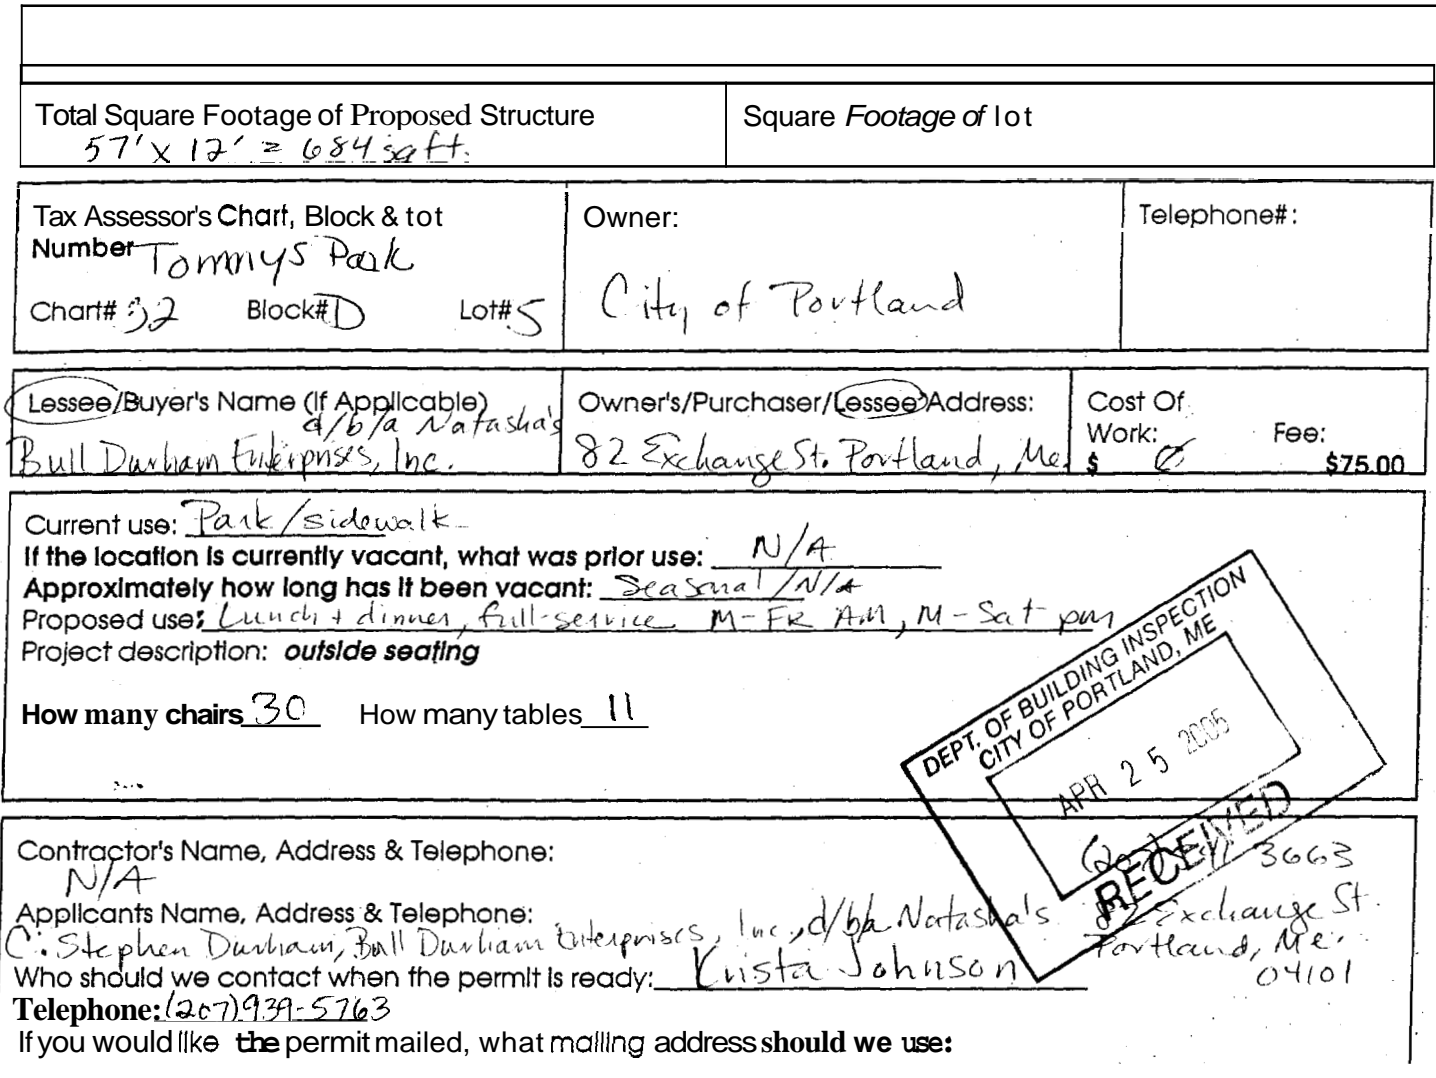 Total Square Footage of Proposed Structure
57' x 12' = 684 sq ft.
Square Footage of lot
Tax Assessor's Chart, Block & tot
Number Tommys Park
Chart# 32 Block# D Lot# 5
Owner:
City of Portland
Telephone#:
Lessee/Buyer's Name (If Applicable)
d/b/a Natasha's
Bull Durham Enterprises, Inc.
Owner's/Purchaser/Lessee Address:
82 Exchange St. Portland, Me.
Cost Of
Work: Fee:
$ $75.00
Current use: Park/sidewalk
If the location is currently vacant, what was prior use: N/A
Approximately how long has it been vacant: Seasonal/N/A
Proposed use: Lunch + dinner, full-service M-FR AM, M-Sat pm
Project description: outside seating
How many chairs 30 How many tables 11
DEPT. OF BUILDING INSPECTION
CITY OF PORTLAND, ME
APR 25 2005
RECEIVED
Contractor's Name, Address & Telephone:
N/A
3663
Applicants Name, Address & Telephone:
C. Stephen Durham, Bull Durham Enterprises, Inc., d/b/a Natasha's 82 Exchange St.
Portland, Me.
04101
Who should we contact when the permit is ready: Krista Johnson
Telephone: (207) 939-5763
If you would like the permit mailed, what mailing address should we use: